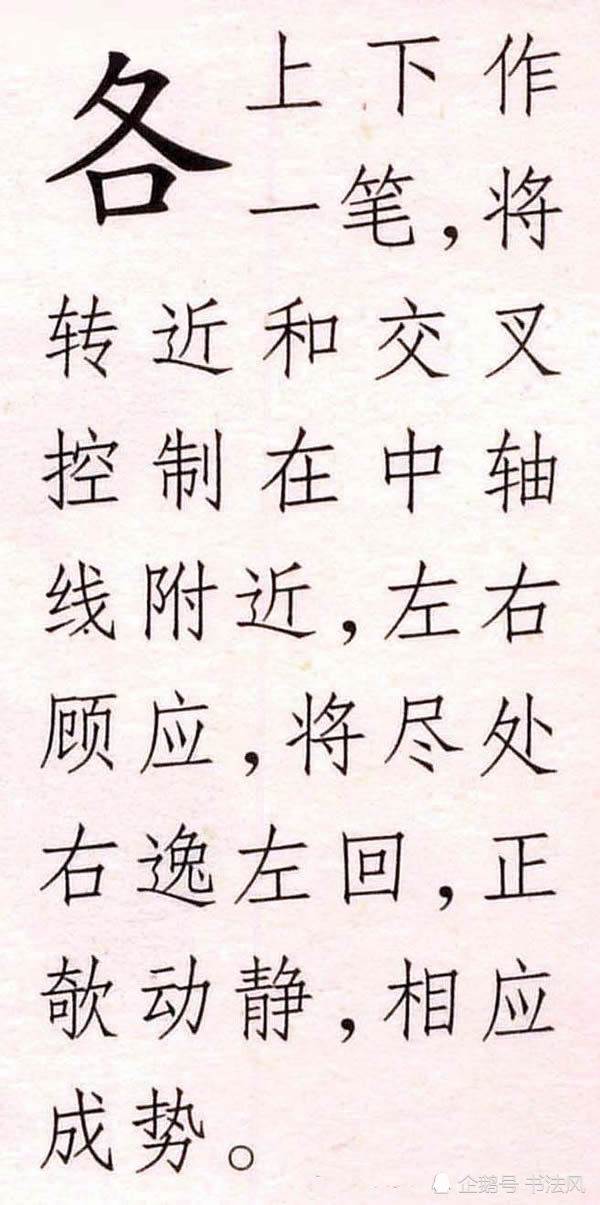 各
上下作
一笔，将
转近和交叉
控制在中轴
线附近，左右
顾应，将尽处
右逸左回，正
欹动静，相应
成势。
企鹅号 书法风